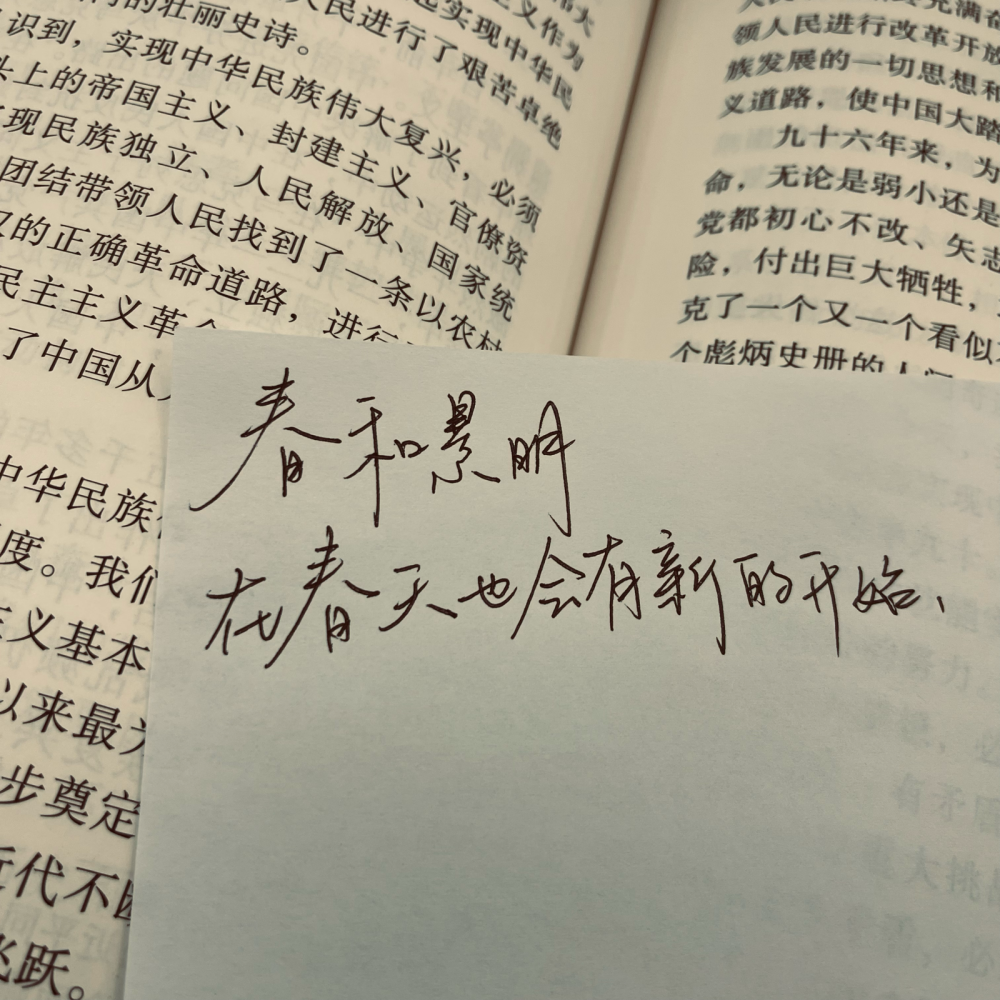 们的壮丽史诗。
人民进行了艰苦卓绝
识到，实现中华民族伟大复兴，必须
头上的帝国主义、封建主义、官僚资
现民族独立、人民解放、国家统
团结带领人民找到了一条以农村
的正确革命道路，进行
民主主义革命
了中国从
中华民族
度。我们
主义基本
以来最为
步奠定
近代不断
飞跃。
领人民进行改革开放
族发展的一切思想和
义道路，使中国大踏
九十六年来，为
命，无论是弱小还是
党都初心不改、矢志
险，付出巨大牺牲，
克了一个又一个看似
个彪炳史册的人间
春和景明
在春天也会有新的开始、